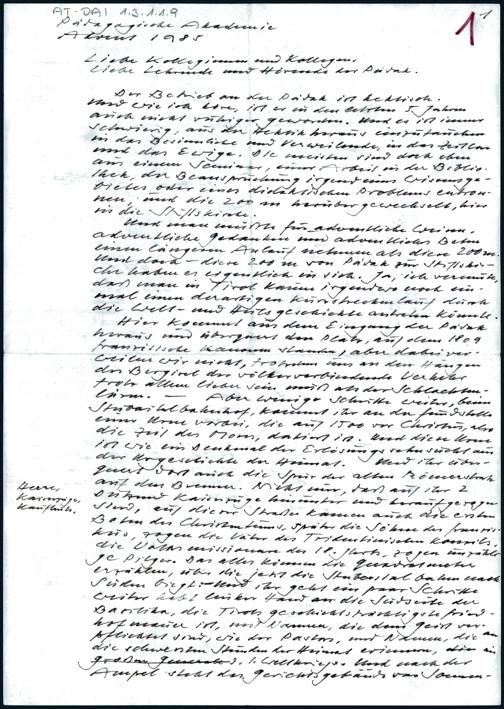 AT-DAI 1.3.1.1.9
1
1
Pädagogische Akademie
Advent 1985
Liebe Kolleginnen und Kollegen,
Liebe Lehrende und Hörende der Pädak.
Der Betrieb an der Pädak ist hektisch.
Und wie ich höre, ist er in den letzten 5 Jahren
auch nicht ruhiger geworden. Und es ist immer
schwierig, aus der Hektik heraus einzutauchen
in das Besinnliche und Verweilende, in das Zeitlose
und das Ewige. Die meisten sind doch eben
aus einem Seminar, einer Arbeit in der Biblio-
thek, der Beanspruchung irgend eines Wissensge-
bietes oder eines didaktischen Problems entron-
nen, und die 200 m herübergewechselt, hier
in die Stiftskirche.
Und man müßte für adventliche Weisen,
adventliche Gedanken und adventliches Beten
einen längeren Anlauf nehmen als diese 200 m.
Und doch - diese 200 m von Pädak zur Stiftskir-
che haben es eigentlich in sich. Ja, ich vermute,
daß man in Tirol kaum irgendwo noch ein-
mal einen derartigen Kurzstreckenlauf durch
die Welt- und Heilsgeschichte antreten könnte.
Hier kommt aus dem Eingang der Pädak
heraus und übergeht den Platz, auf dem 1809
französische Kanonen standen, aber dabei ver-
weilen wir nicht, trotzdem uns an den Hängen
des Bergisel der völkerverbindende Verkehr
trotz allem lieber sein muß als der Schlachten-
lärm. — Aber wenige Schritte weiter, beim
Stubaitalbahnhof, kommt ihr an der Fundstelle
einer Urne vorbei, die auf 1200 vor Christus, also
die Zeit des Moses, datiert ist. Und diese Urne
ist wie ein Denkmal der Erlösungssehnsucht aus
der Urgeschichte der Heimat. Und ihr über-
quert dort auch die Spur der alten Römerstraße
auf den Brenner. Nicht nur, daß auf ihr 2
Dutzend Kaiserzüge hinunter und heraufgezogen
sind, auf dieser Straße kamen auch die ersten
Boten des Christentums, später die Söhne des Franzis-
kus, zogen die Väter des Tridentinischen Konzils,
die Volksmissionare des 18. Jhrts, zogen unzähli-
ge Pilger. Das alles könnten die Quadratmeter
erzählen, über die jetzt die Stubaitalbahn nach
Süden biegt. Und ihr geht ein paar Schritte
weiter habt linker Hand an die Südseite der
Basilika, die Tirols geschichtsträchtigste Fried-
hofmauer ist, mit Namen, die dem Geist ver-
pflichtet sind, wie der Pastors, und Namen, die an
die schwersten Stunden der Heimat erinnern, die
großen Generale d. 1. Weltkriegs. Und nach der
Ampel steht das Gerichtsgebäude von Sonnen-
Heere,
Kaiserzüge,
Kaufleute.